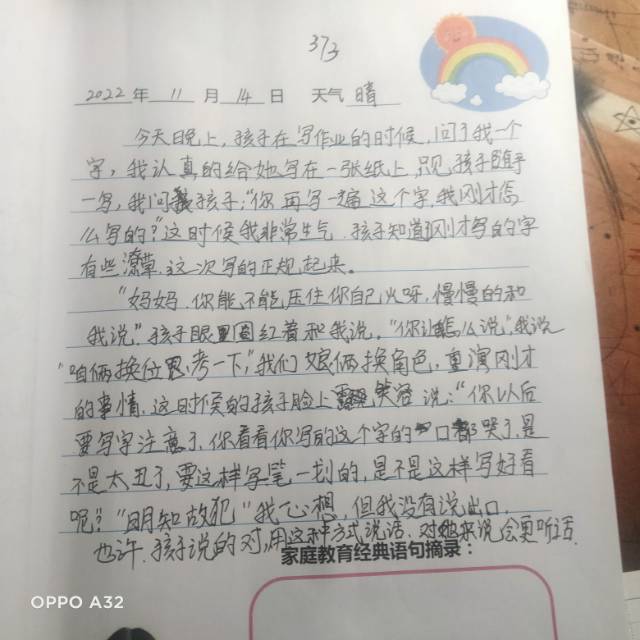 373
2022 年 11 月 14 日 天气 晴
今天晚上,孩子在写作业的时候,问了我一个
字,我认真的给她写在一张纸上,只见孩子随手
一写,我问孩子:"你再写一遍这个字,我刚才怎
么写的?"这时候我非常生气,孩子知道刚才写的字
有些潦草,这次写的正规起来。
"妈妈,你能不能压住你自己火呀,慢慢的和
我说"孩子眼圈红着和我说,"你让怎么说"我说
"咱俩换位思考一下,"我们娘俩换角色,重演刚才
的事情,这时候的孩子脸上笑容说:"你以后
要写字注意了,你看看你写的这个字的口都哭了,是
不是太丑了,要这样写笔一划的,是不是这样写好看
呢?"明知故犯"我心想,但我没有说出口,
也许,孩子说的对,用这种方式说话,对她来说会更听话.
家庭教育经典语句摘录:
OPPO A32